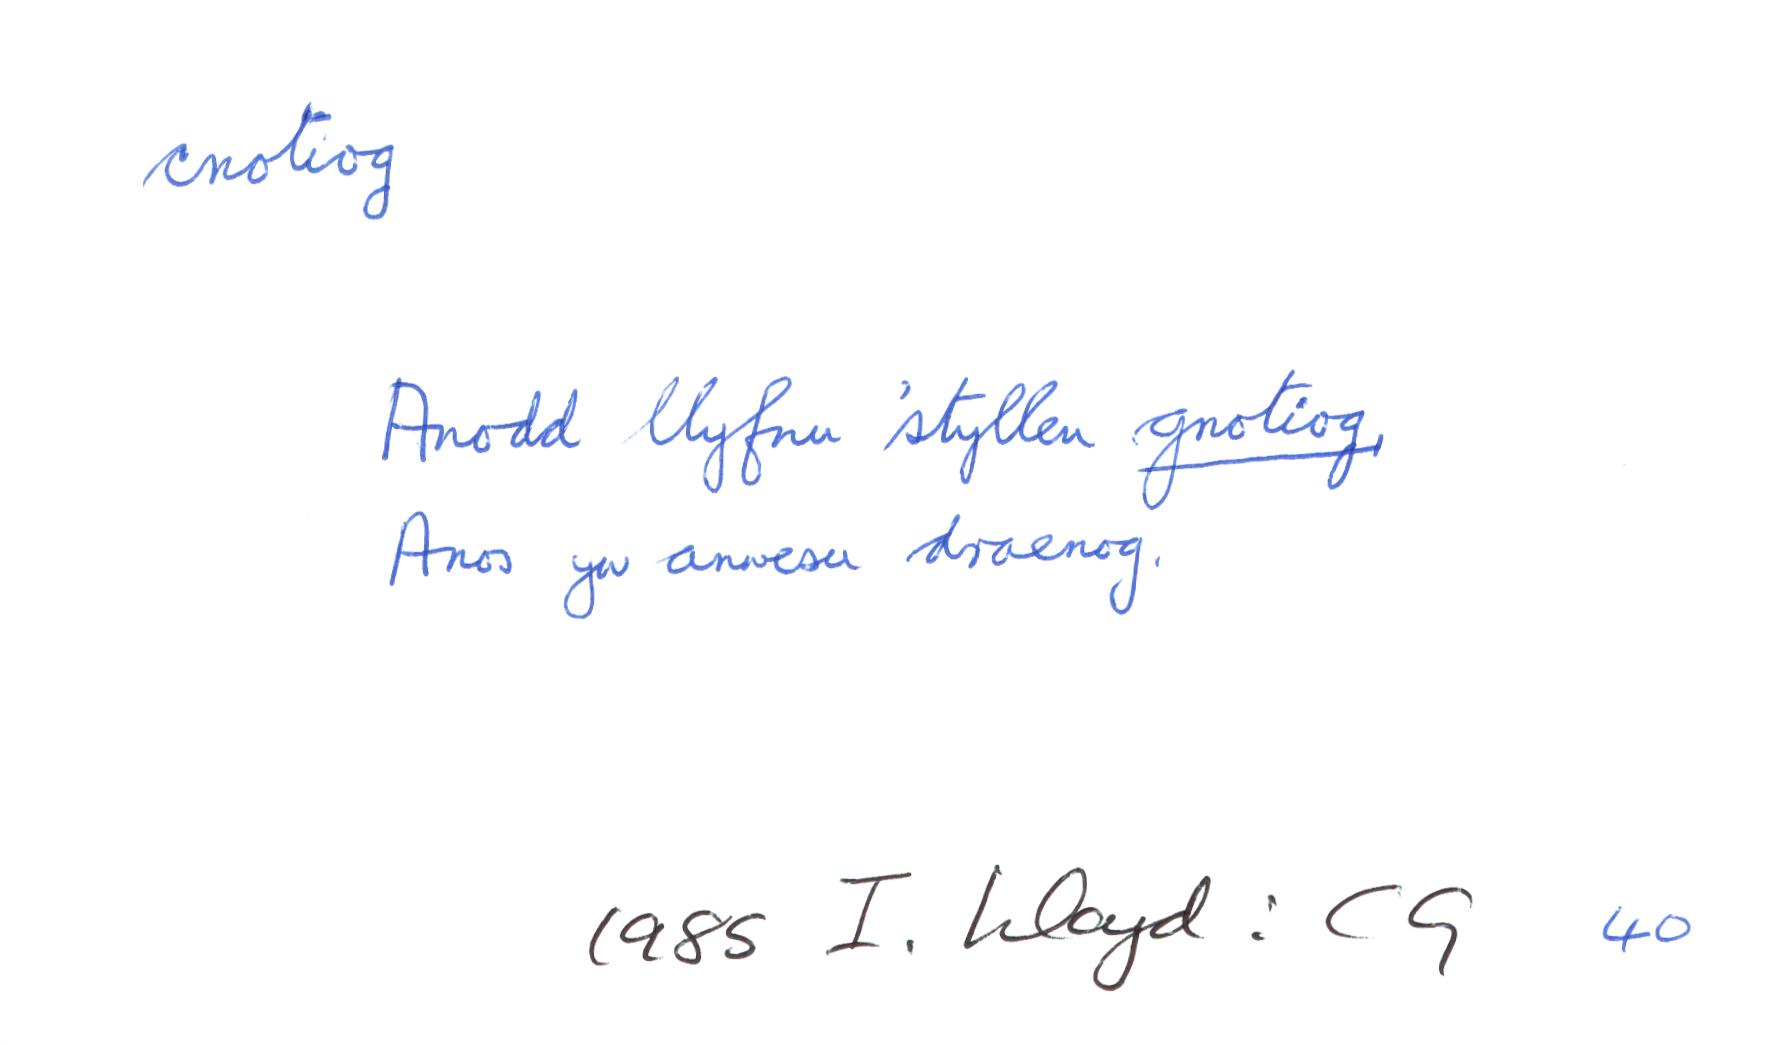 cnotiog
Anodd llyfnu 'styllen gnotiog,
Anos yw anwesu draenog.
1985 I. Lloyd : CG 40